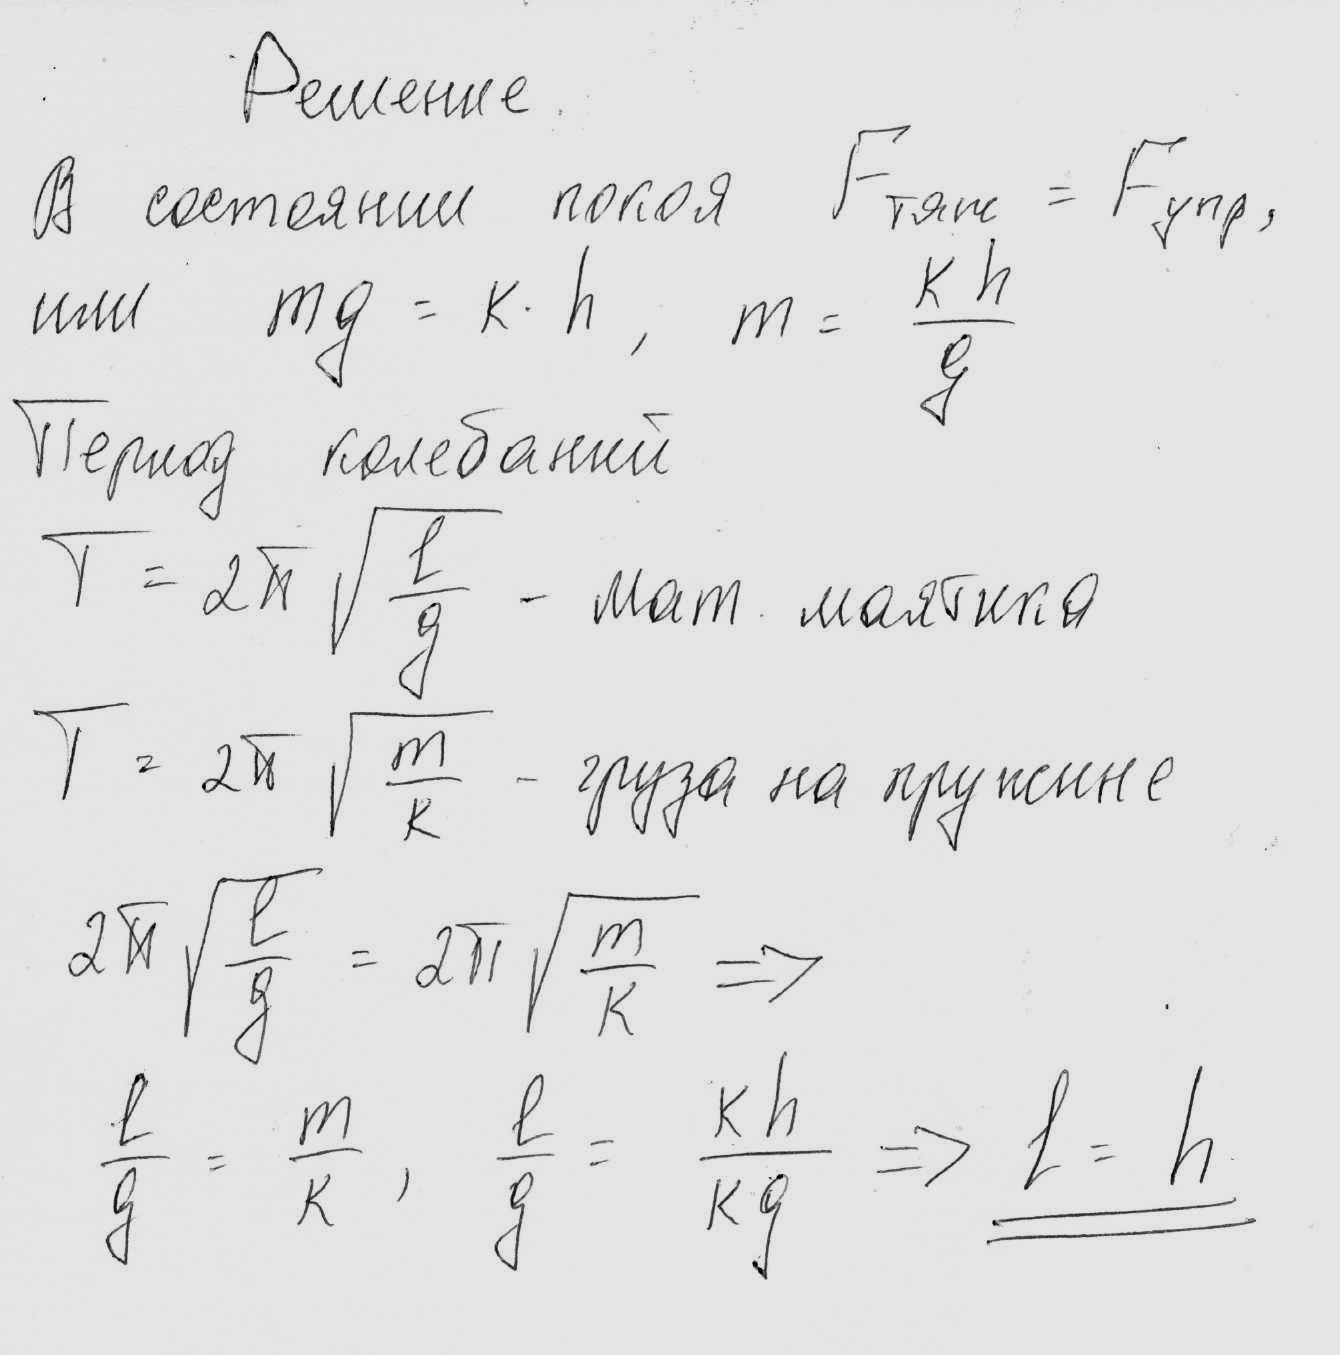 Решение.
В состоянии покоя Fтяж = Fупр,
или mg = k · h, m = kh/g
Период колебаний
T = 2π √(l/g) - мат. маятника
T = 2π √(m/k) - груза на пружине
2π √(l/g) = 2π √(m/k) =>
l/g = m/k, l/g = kh/kg => l = h